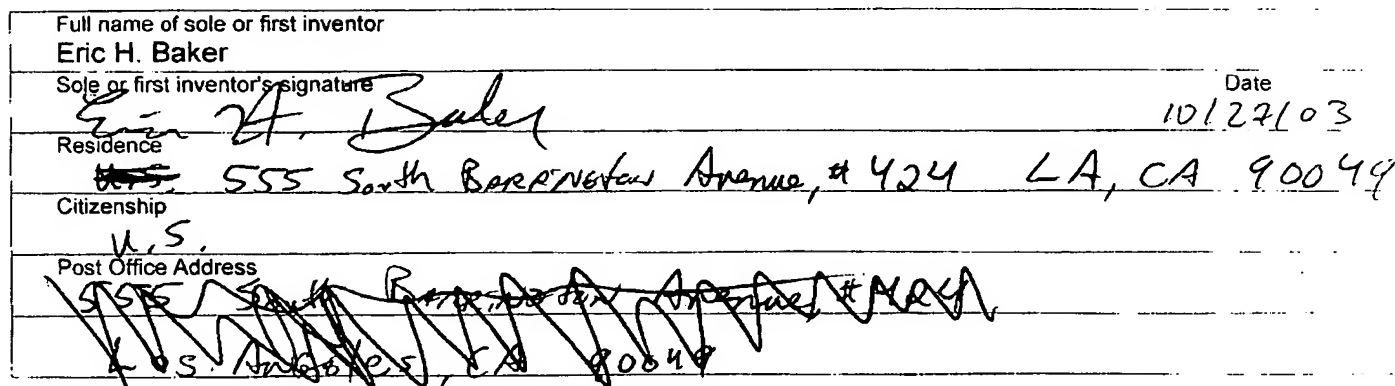 Full name of sole or first inventor
Eric H. Baker
Sole or first inventor's signature
Eric H. Baker
Date
10/27/03
Residence
U.S. 555 South Barrington Avenue, # 424 LA, CA 90049
Citizenship
U.S.
Post Office Address
555 South Barrington Avenue, # 424
Los Angeles, CA 90049